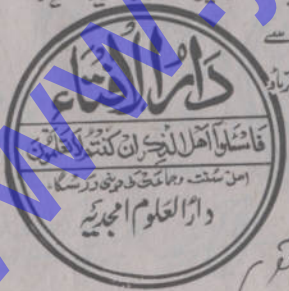 دارالافتاء
فاسئلوا اهل الذکر ان کنتم لا تعلمون
اهل سنت وجماعت کی دینی درسگاہ
دارالعلوم امجدیہ
سے